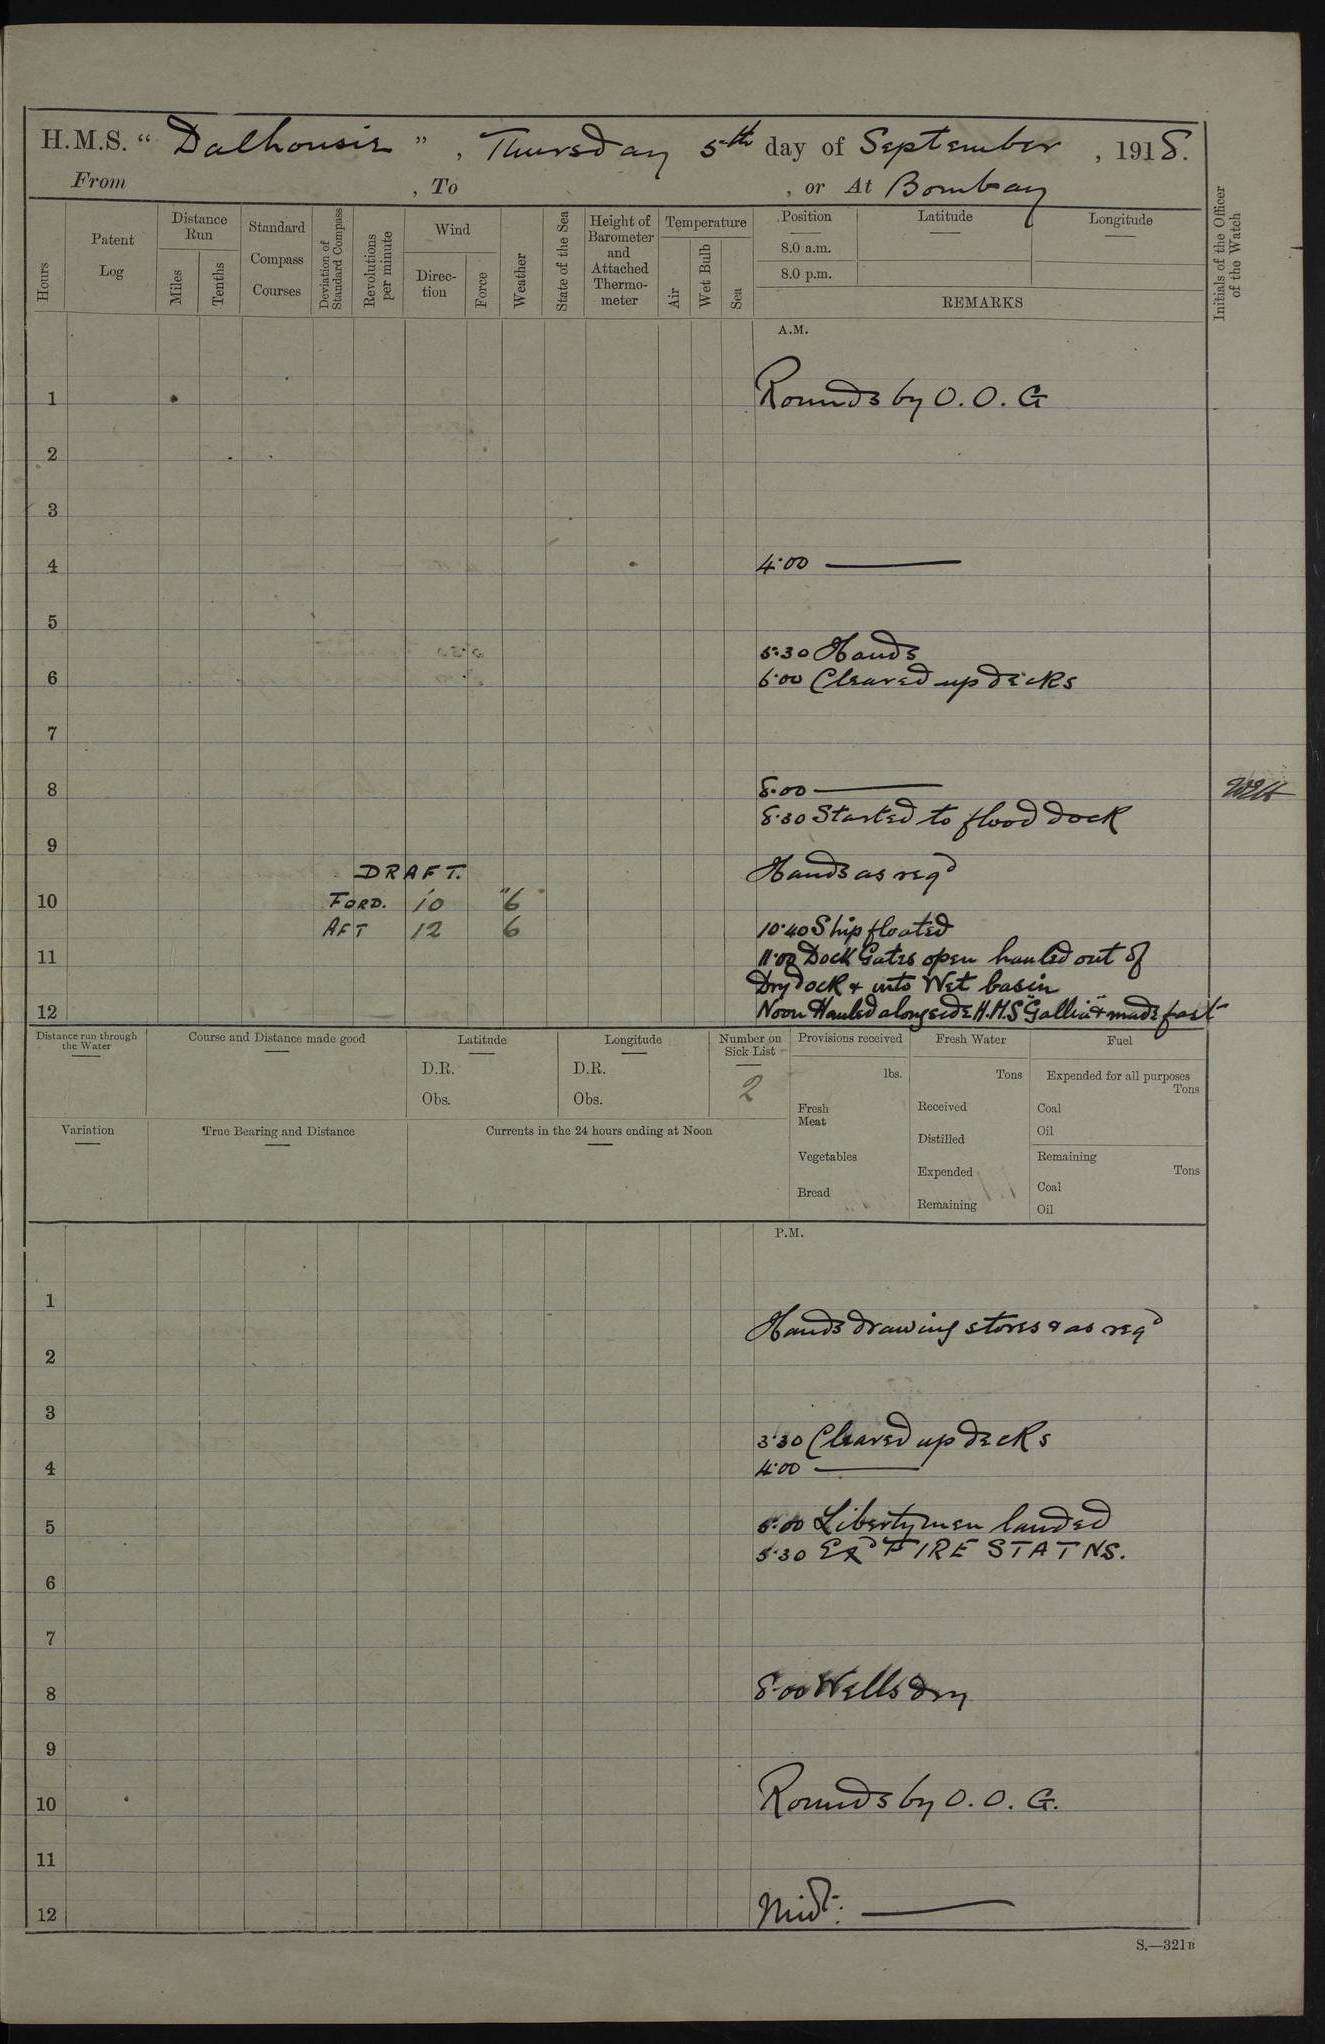 H.M.S. “ Dalhousie ” , Thursday 5th day of September , 1918.
From , To , or At Bombay
Hours
Patent Log
Distance Run
Miles
Tenths
Standard Compass Courses
Deviation of Standard Compass
Revolutions per minute
Wind
Direction
Force
Weather
State of the Sea
Height of Barometer and Attached Thermometer
Temperature
Air
Wet Bulb
Sea
Position
Latitude
Longitude
8.0 a.m.
8.0 p.m.
REMARKS
Initials of the Officer of the Watch
A.M.
1 Rounds by O.O.G
2
3
4 4·00
5
5·30 Hands
6 6·00 Cleared up decks
7
8 8·00
8·30 Started to flood dock
9
DRAFT. Hands as reqd
10 FORD. 10 "6
AFT 12 6 10·40 Ship floated
11 11·00 Dock Gates open hauled out of
Dry dock & into Wet basin
12 Noon Hauled alongside H.M.S "Gallia" & made fast
Distance run through the Water
Course and Distance made good
Latitude
D.R.
Obs.
Longitude
D.R.
Obs.
Number on Sick List
2
Provisions received
lbs.
Fresh Meat
Vegetables
Bread
Fresh Water
Tons
Received
Distilled
Expended
Remaining
Fuel
Expended for all purposes
Tons
Coal
Oil
Remaining
Tons
Coal
Oil
Variation
True Bearing and Distance
Currents in the 24 hours ending at Noon
P.M.
1
Hands drawing stores & as reqd
2
3
3·30 Cleared up decks
4 4·00
5 5·00 Libertymen landed
5·30 Exd FIRE STATNS.
6
7
8 8·00 Wells dry
9
10 Rounds by O.O.G.
11
12 Midt:
S.—321B